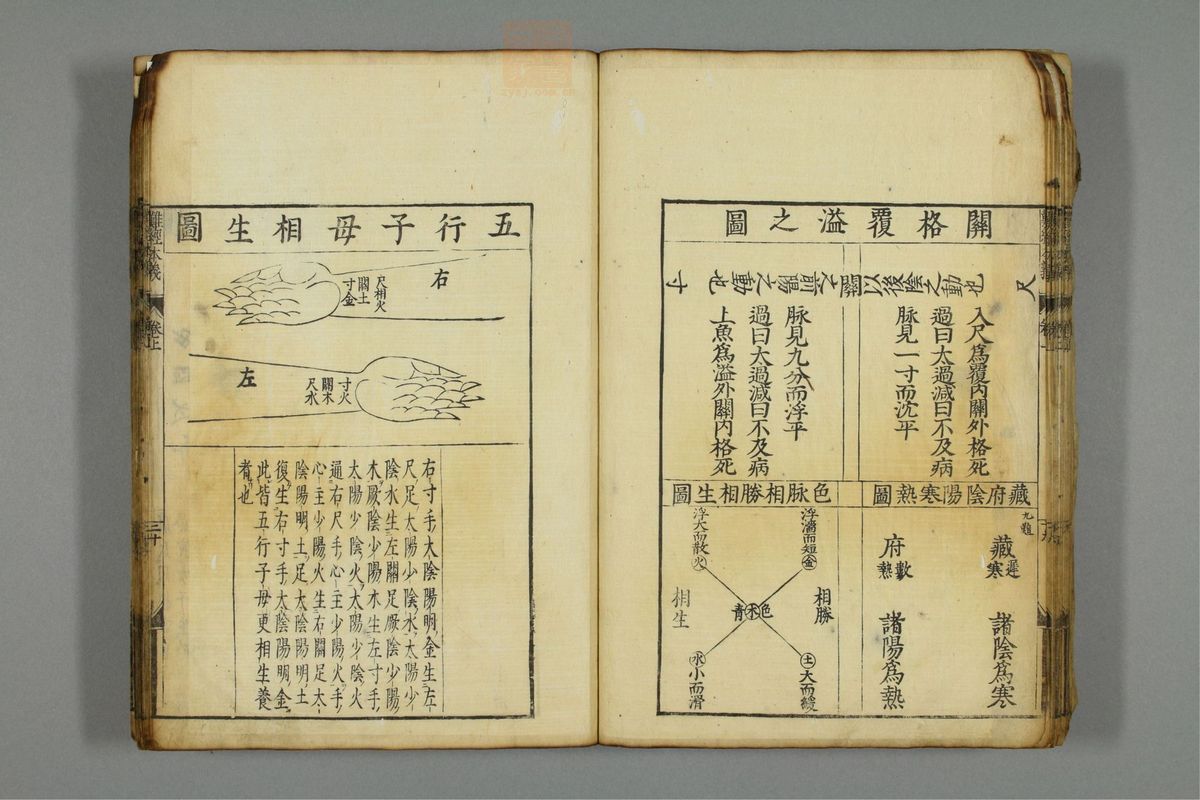 關格覆溢之圖
尺
關以後陰之動也
關之前陽之動也
寸
入尺爲覆内關外格死
過曰太過減曰不及病
脉見一寸而沈平
脉見九分而浮平
過曰太過減曰不及病
上魚爲溢外關内格死
藏府陰陽寒熱圖
九難
藏
遲
寒
諸陰爲寒
府
數
熱
諸陽爲熱
色脉相勝相生圖
浮濇而短金
浮大而散火
相勝
青木色
相生
土大而緩
水小而滑
五行子母相生圖
右
尺相火
關土
寸金
左
寸火
關木
尺水
右寸手太陰陽明金生左
尺足太陽少陰水太陽少
陰水生左關足厥陰少陽
木厥陰少陽木生左寸手
太陽少陰火太陽少陰火
通右尺手心主少陽火手
心主少陽火生右關足太
陰陽明土足太陰陽明土
復生右寸手太陰陽明金
此皆五行子母更相生養
者也
難經本義
卷上
三十